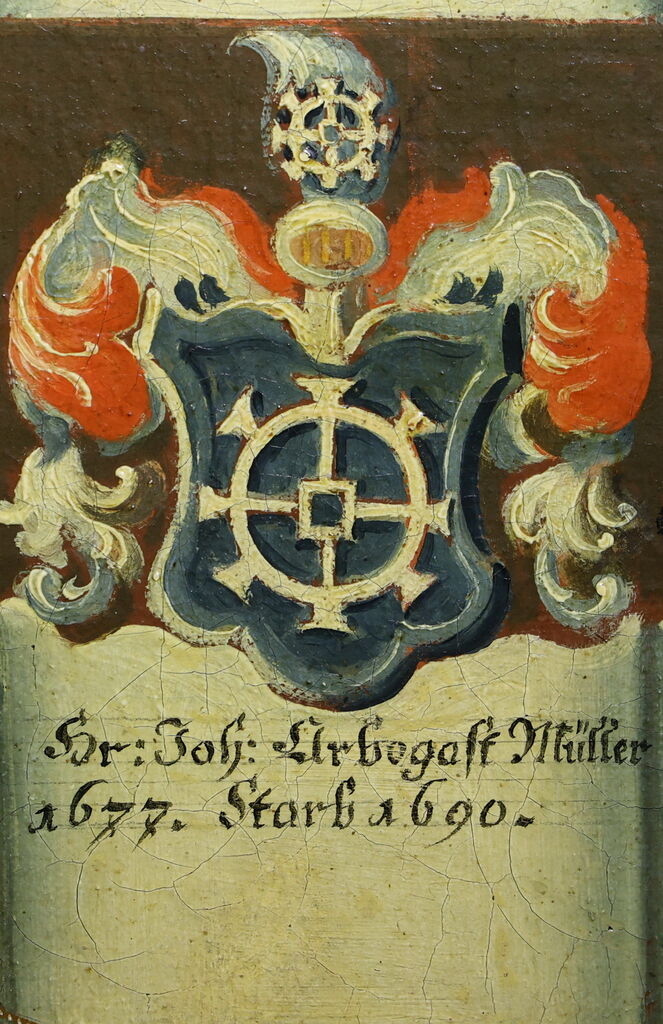 Hr: Joh: Arbogast Müller
1677. Starb 1690.